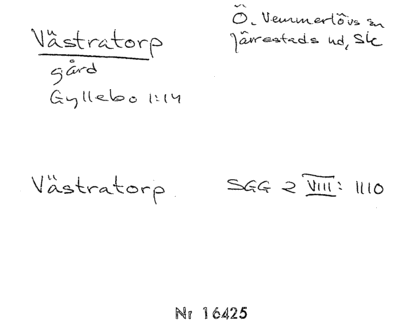 Västratorp
Ö. Vemmerlövs sn
Järrestads hd, Sk
gård
Gyllebo 1:14
Västratorp
SGG 2 VIII: 1110
Nr 16425